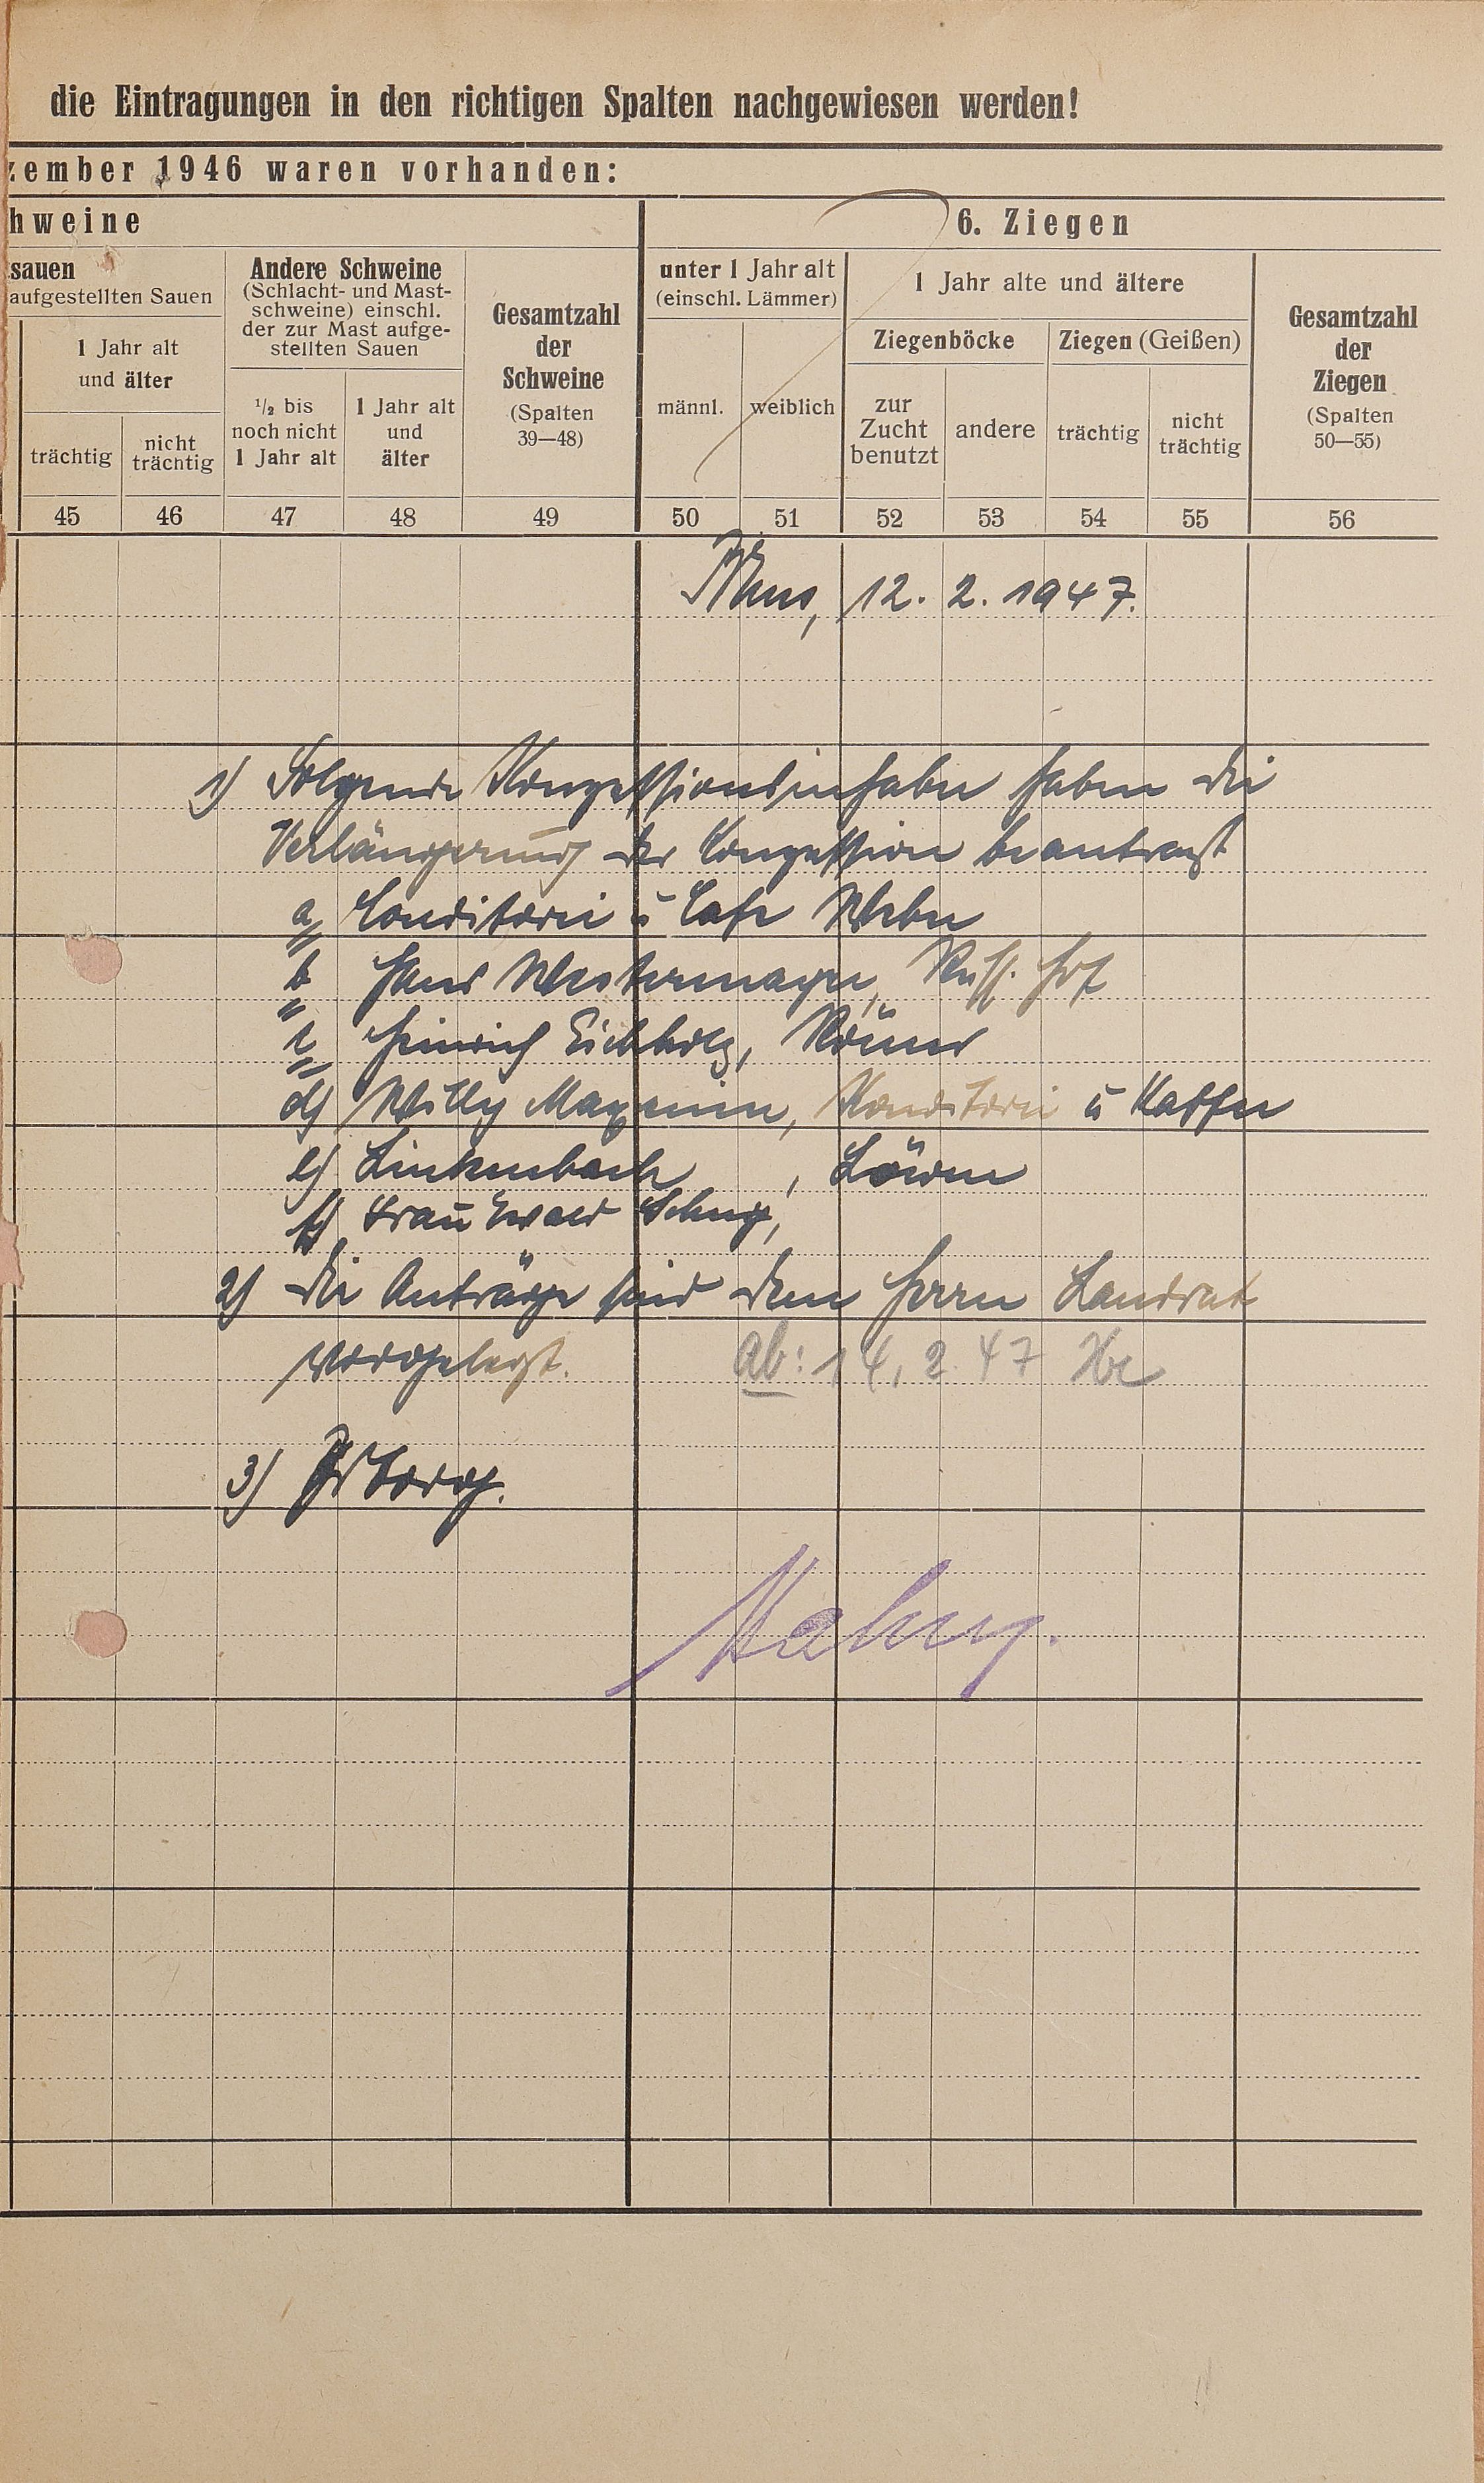 die Eintragungen in den richtigen Spalten nachgewiesen werden!
zember 1946 waren vorhanden:
hweine
6. Ziegen
sauen
aufgestellten Sauen
1 Jahr alt
und älter
trächtig
nicht
trächtig
Andere Schweine
(Schlacht- und Mast-
schweine) einschl.
der zur Mast aufge-
stellten Sauen
1/2 bis
noch nicht
1 Jahr alt
1 Jahr alt
und
älter
Gesamtzahl
der
Schweine
(Spalten
39—48)
unter 1 Jahr alt
(einschl. Lämmer)
männl.
weiblich
1 Jahr alte und ältere
Ziegenböcke
zur
Zucht
benutzt
andere
Ziegen (Geißen)
trächtig
nicht
trächtig
Gesamtzahl
der
Ziegen
(Spalten
50—55)
45 46 47 48 49 50 51 52 53 54 55 56
12. 2. 1947.
1) Folgende Konzessionsinhaber haben die
Verlängerung der Conzession beantragt
a) Conditorei u Cafe Weber
b Hans Westermayer, Russ. Hof
c) Heinrich Eichholz, Römer
d) Willy Maxeiner, Konditorei u Kaffee
e) Linkenbach, Löwen
f) Frau Ewald
2) Die Anträge sind dem Herrn Landrat
vorgelegt.
ab: 14. 2. 47
3)